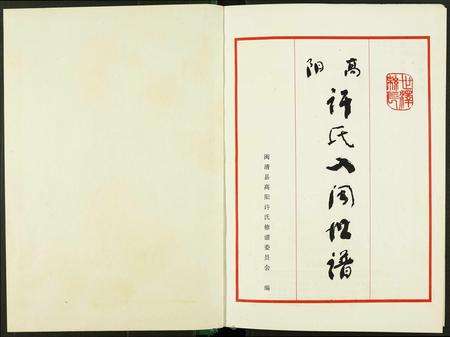 世泽
绵长
高阳
许氏入闽世谱
闽清县高阳许氏修谱委员会 编